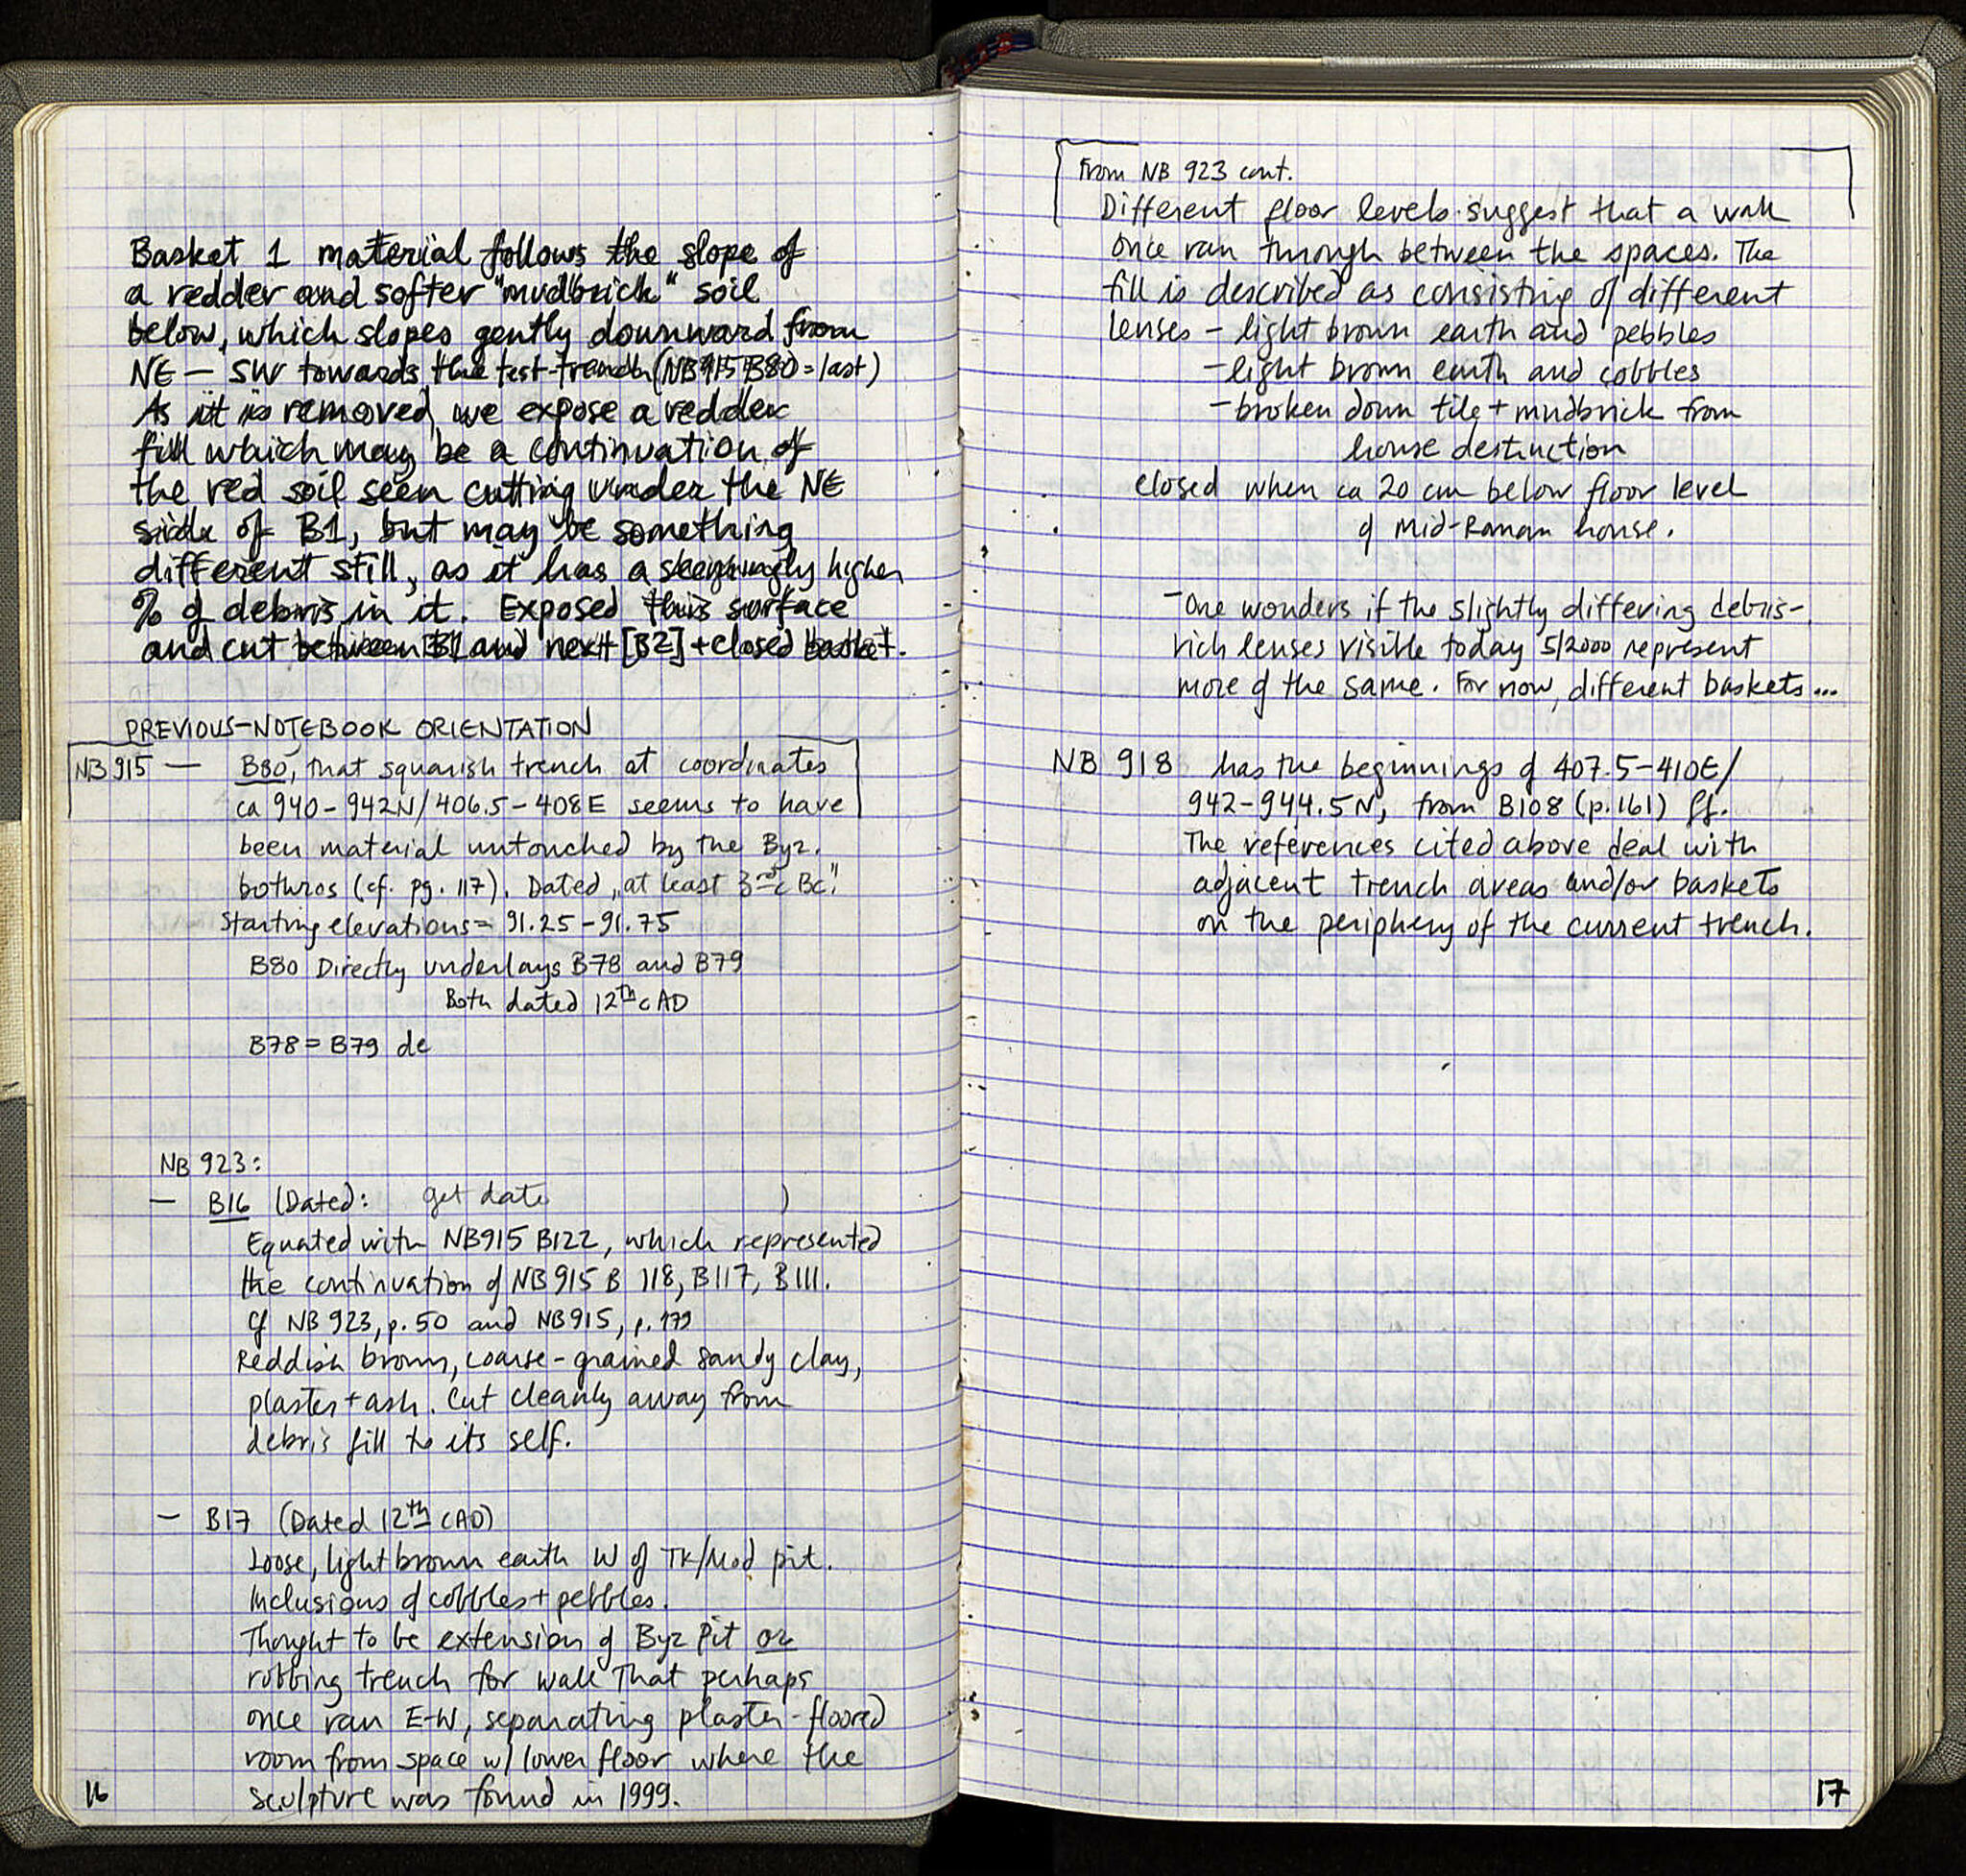 Basket 1 material follows the slope of
a redder and softer "mudbrick" soil
below, which slopes gently downward from
NE – SW towards the test-trench (NB 915 B80 = last)
As it is removed, we expose a redder
fill which may be a continuation of
the red soil seen cutting under the NE
side of B1, but may be something
different still, as it has a seemingly higher
% of debris in it. Exposed this surface
and cut between B1 and next [B2] + closed basket.
PREVIOUS-NOTEBOOK ORIENTATION
NB 915 — B80, that squarish trench at coordinates
ca 940-942N/406.5-408E seems to have
been material untouched by the Byz.
bothros (cf. pg. 117). Dated "at least 3rd c BC."
Starting elevations = 91.25 - 91.75
B80 Directly underlays B78 and B79
Both dated 12th c AD
B78 = B79 de
NB 923:
— B16 (Dated: get date )
Equated with NB915 B122, which represented
the continuation of NB 915 B 118, B117, B111.
Cf NB 923, p. 50 and NB915, p. 179
Reddish brown, coarse-grained sandy clay,
plaster + ash. Cut cleanly away from
debris fill to its self.
— B17 (Dated 12th c AD)
Loose, light brown earth W of TK/Mod pit.
Inclusions of cobbles + pebbles.
Thought to be extension of Byz Pit or
robbing trench for wall that perhaps
once ran E-W, separating plaster-floored
room from space w/ lower floor where the
sculpture was found in 1999.
16
From NB 923 cont.
Different floor levels suggest that a wall
once ran through between the spaces. The
fill is described as consisting of different
lenses – light brown earth and pebbles
– light brown earth and cobbles
– broken down tile + mudbrick from
house destruction
closed when ca 20 cm below floor level
of Mid-Roman house.
– One wonders if the slightly differing debris-
rich lenses visible today 5/2000 represent
more of the same. For now, different baskets...
NB 918 has the beginnings of 407.5-410E/
942-944.5N, from B108 (p.161) ff.
The references cited above deal with
adjacent trench areas and/or baskets
on the periphery of the current trench.
17